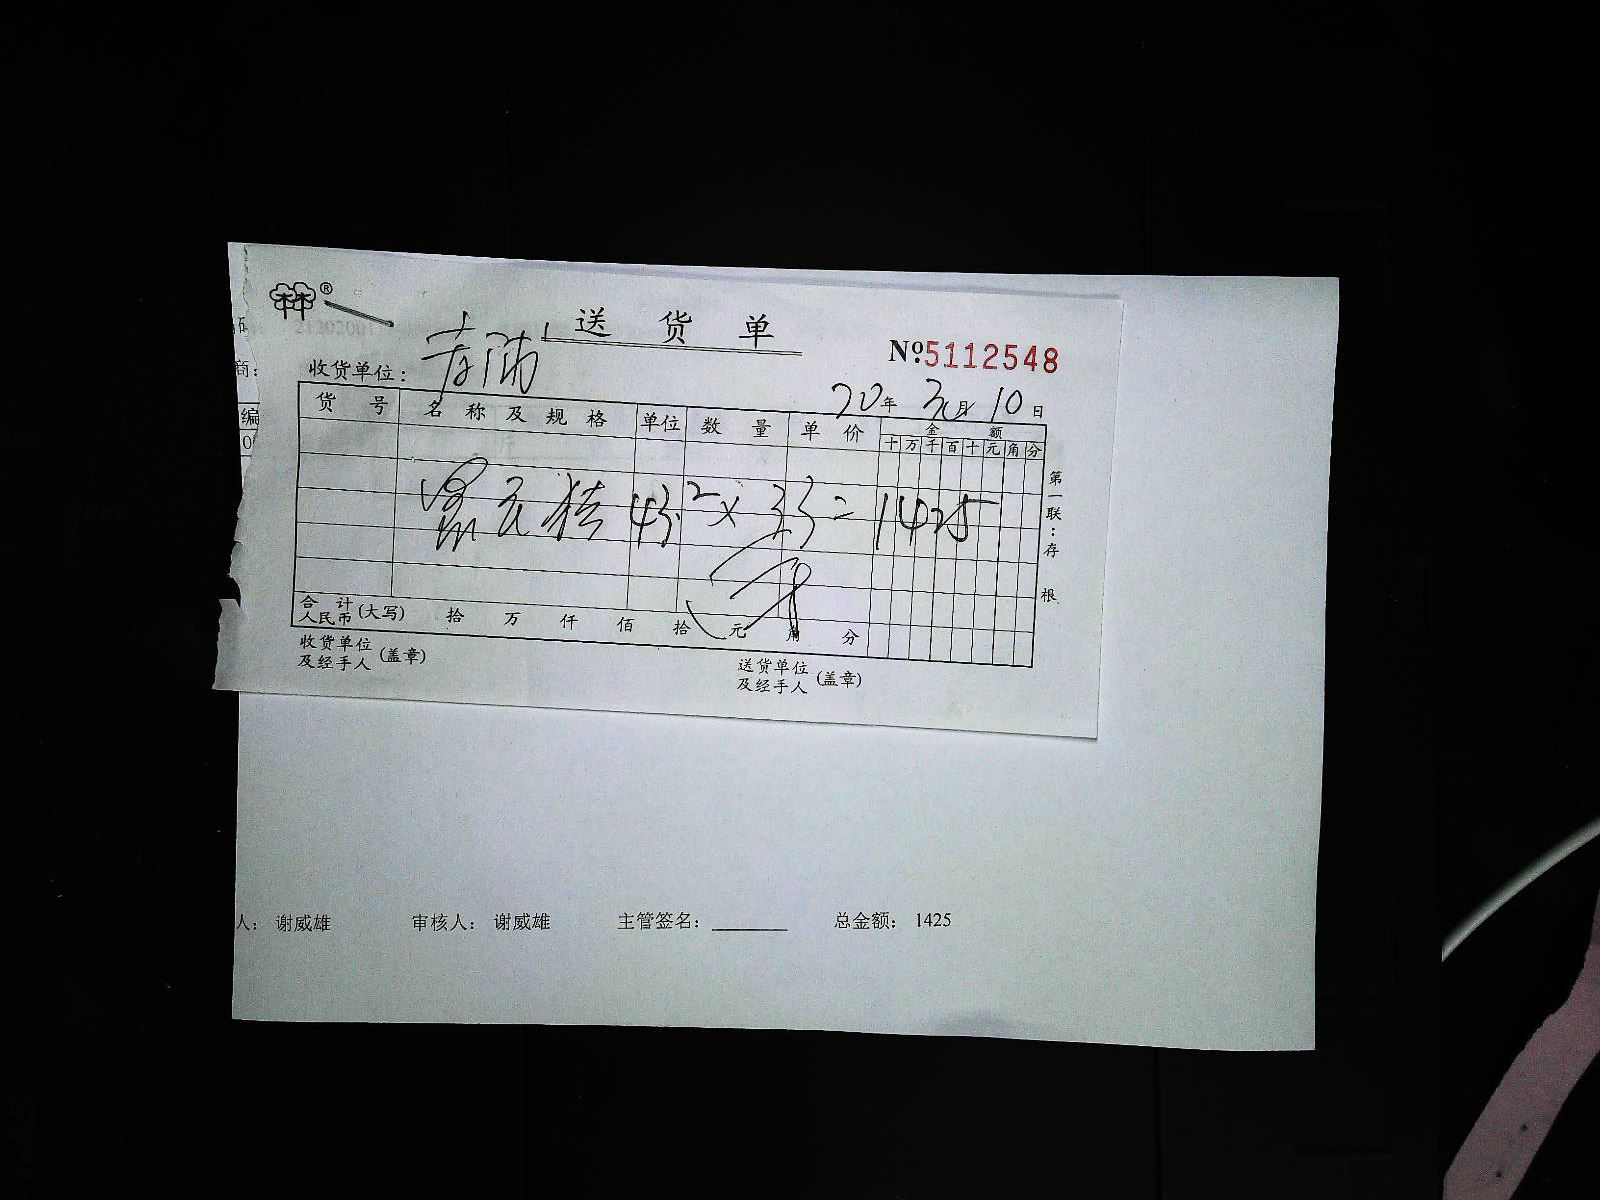 送 货 单
№5112548
收货单位：
20年 元月 10日
货 号 名 称 及 规 格 单位 数 量 单 价 金 额
十 万 千 百 十 元 角 分
43.2 × 33 = 1425
合 计
人民币 (大写) 拾 万 仟 佰 拾 元 角 分
收货单位
及经手人 (盖章)
送货单位
及经手人 (盖章)
第一联：存 根
商：
编
人： 谢威雄 审核人： 谢威雄 主管签名：________ 总金额： 1425